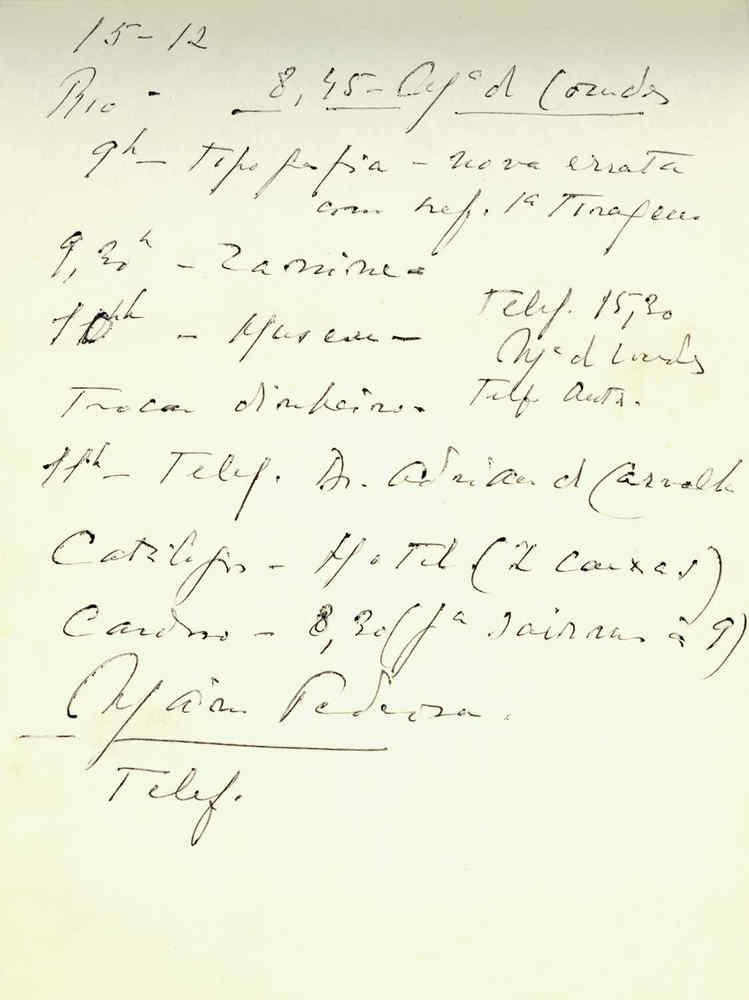 15-12
Rio - 8,45 - Mª d Lourdes
9h - tipografia - nova errata
com ref. 1ª Tiragem
9,30h -
10hh - Museu -
Telef. 15,30
Mª d Lourdes
Trocar dinheiro -
Telf. Auto.
11h - Telef. Dr. Adriano d Carvalho
Catálogos - Hotel (2 caixas)
Cardoso - 8,30 (Já sairam à 9)
Mário Pedrosa.
Telef.